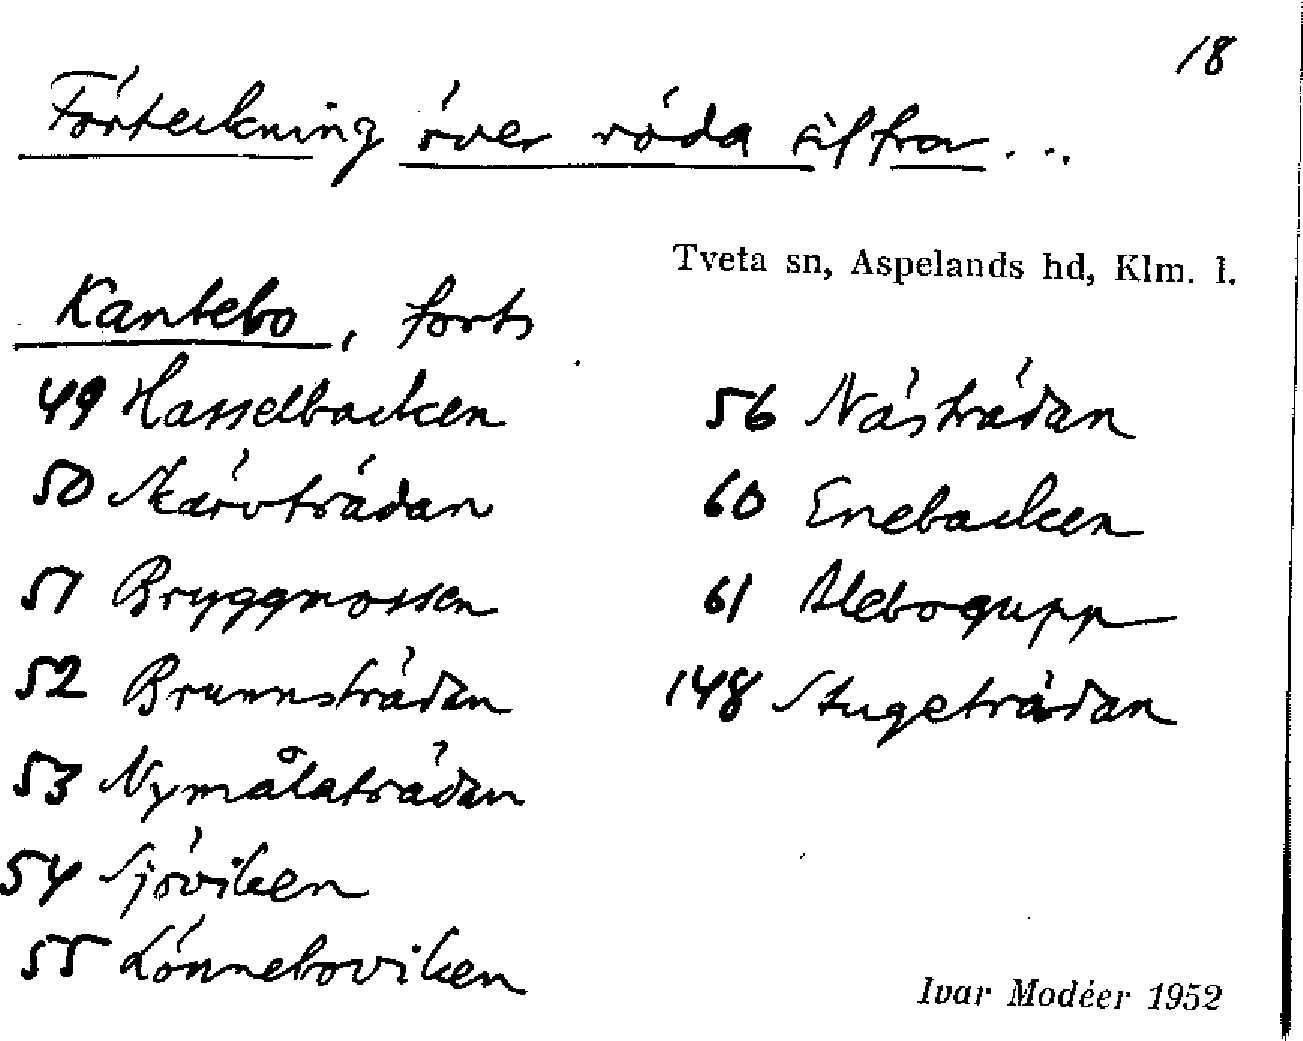 18
Förteckning över röda siffror...
Tveta sn, Aspelands hd, Klm. l.
Kantebo, forts
49 Hasselbacken
50 Skärvträdan
51 Bryggmossen
52 Brunnsträdan
53 Nymålaträdan
54 Sjöviken
55 Lönneboviken
56 Nästrädan
60 Enebacken
61 Alebogupp
148 Stugeträdan
Ivar Modéer 1952